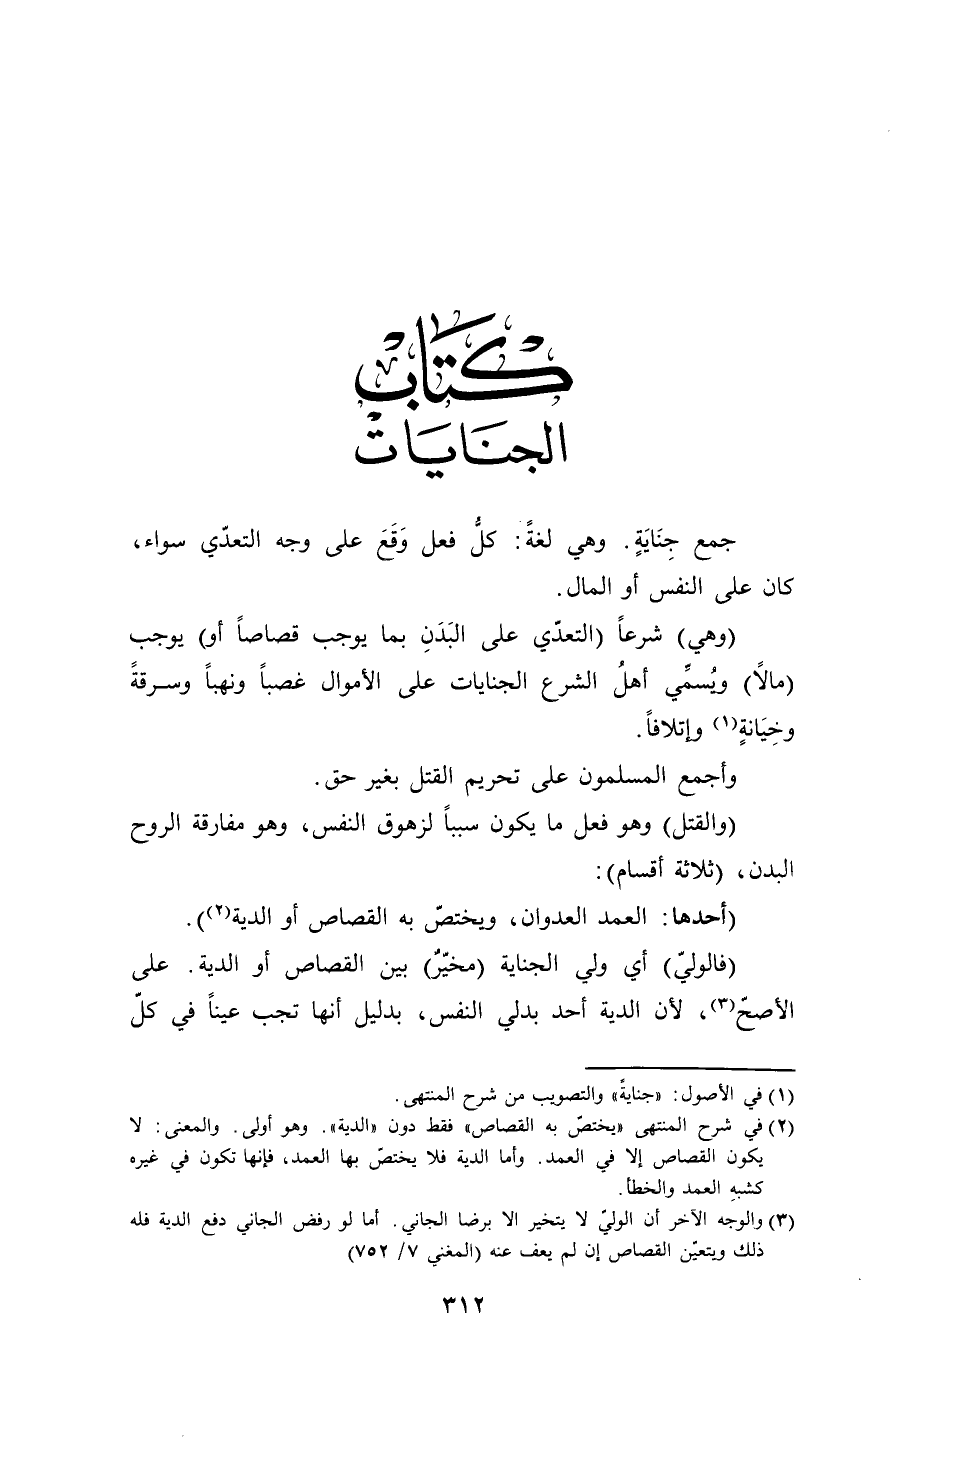 كتاب
الجنايات
جمع جِنَايَةٍ. وهي لغةً: كلُّ فعل وَقَعَ على وجه التعدّي سواء،
كان على النفس أو المال.
(وهي) شرعاً (التعدّي على البَدَنِ بما يوجب قصاصاً أو) يوجب
(مالاً) ويُسمِّي أهلُ الشرع الجنايات على الأموال غصباً ونهباً وسرقةً
وخِيَانةٍ(١) وإتلافاً.
وأجمع المسلمون على تحريم القتل بغير حق.
(والقتل) وهو فعل ما يكون سبباً لزهوق النفس، وهو مفارقة الروح
البدن، (ثلاثة أقسام):
(أحدها: العمد العدوان، ويختصّ به القصاص أو الدية(٢)).
(فالوليّ) أي ولي الجناية (مخيّرٌ) بين القصاص أو الدية. على
الأصحّ(٣)، لأن الدية أحد بدلي النفس، بدليل أنها تجب عيناً في كلّ
(١) في الأصول: «جنايةً» والتصويب من شرح المنتهى.
(٢) في شرح المنتهى «يختصّ به القصاص» فقط دون «الدية». وهو أولى. والمعنى: لا
يكون القصاص إلا في العمد. وأما الدية فلا يختصّ بها العمد، فإنها تكون في غيره
كشبهِ العمد والخطأ.
(٣) والوجه الآخر أن الوليّ لا يتخير الا برضا الجاني. أما لو رفض الجاني دفع الدية فله
ذلك ويتعيّن القصاص إن لم يعف عنه (المغني ٧/ ٧٥٢)
٣١٢